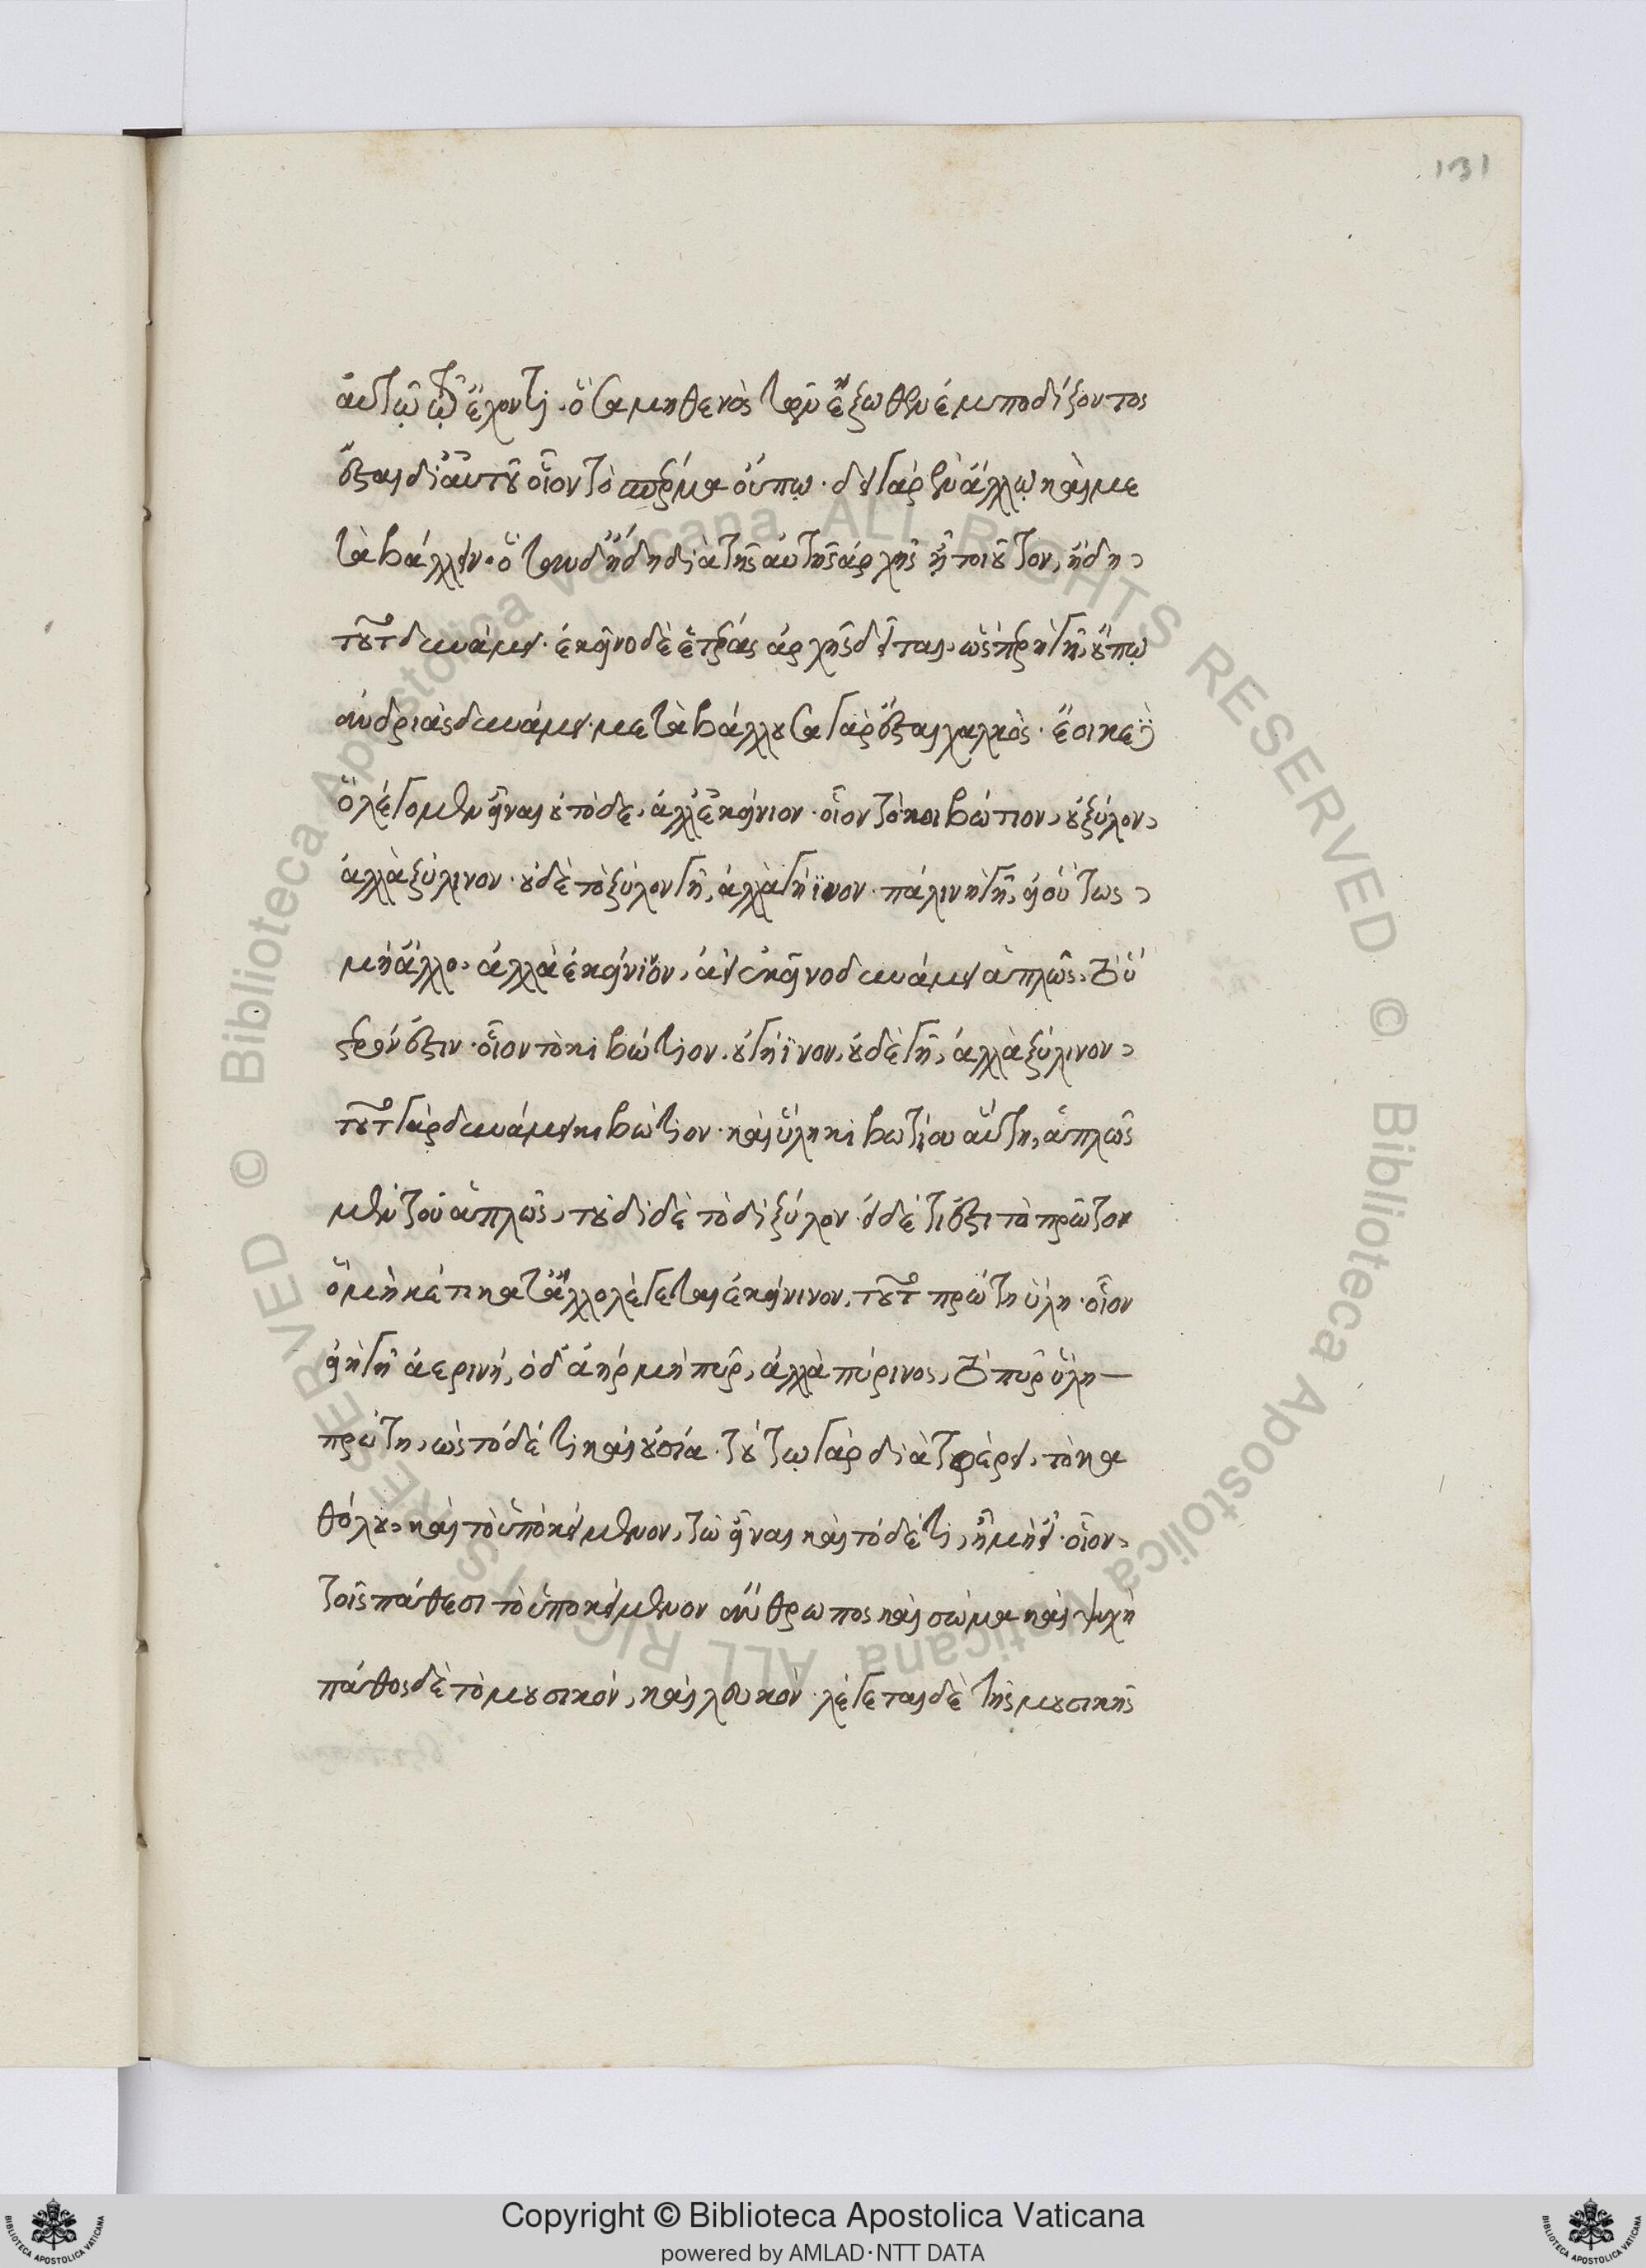 131
αὐτῷ τῷ ἔχοντι· ὅσα μηθενὸς τῶν ἔξωθεν ἐμποδίζοντος
ἔσται δι' αὐτοῦ οἷον τὸ σπέρμα οὔπω· δεῖ γὰρ ἐν ἄλλῳ καὶ με
ταβάλλειν· ὅταν δ' ἤδη διὰ τῆς αὐτῆς ἀρχῆς ᾖ τοιοῦτον, ἤδη
τοῦτο δυνάμει· ἐκεῖνο δὲ ἑτέρας ἀρχῆς δεῖται, ὥσπερ ἡ γῆ, οὔπω
ἀνδριὰς δυνάμει· μεταβάλλουσα γὰρ ἔσται χαλκός· ἔοικε δὲ
ὃ λέγομεν εἶναι οὐ τόδε, ἀλλ' ἐκείνιον· οἷον τὸ κιβώτιον, οὐ ξύλον,
ἀλλὰ ξύλινον· οὐδὲ τὸ ξύλον γῆ, ἀλλὰ γήϊνον· πάλιν ἡ γῆ, εἰ οὕτως
μὴ ἄλλο, ἀλλὰ ἐκείνιον, ἀεὶ ἐκεῖνο δυνάμει ἁπλῶς, τὸ ὕ
στερόν ἐστιν· οἷον τὸ κιβώτιον, οὐ γήϊνον, οὐδὲ γῆ, ἀλλὰ ξύλινον,
τοῦτο γὰρ δυνάμει κιβώτιον· καὶ ὕλη κιβωτίου αὕτη, ἁπλῶς
μὲν τοῦ ἁπλῶς, τουδὶ δὲ τοδὶ ξύλον· εἰ δέ τί ἐστι τὸ πρῶτον
ὃ μηκέτι κατ' ἄλλο λέγεται ἐκείνινον, τοῦτο πρώτη ὕλη· οἷον
εἰ ἡ γῆ ἀερινή, ὁ δ' ἀὴρ μὴ πῦρ, ἀλλὰ πύρινος, τὸ πῦρ ὕλη
πρώτη, ὡς τόδε τι καὶ οὐσία· τούτῳ γὰρ διαφέρει, τὸ κα
θόλου, καὶ τὸ ὑποκείμενον, τῷ εἶναι καὶ τόδε τι, ἢ μὴ εἶ· οἷον
τοῖς πάθεσι τὸ ὑποκείμενον ἄνθρωπος καὶ σῶμα καὶ ψυχὴ
πάθος δὲ τὸ μουσικόν, καὶ λευκὸν· λέγεται δὲ τῆς μουσικῆς
© Biblioteca Apostolica Vaticana ALL RIGHTS RESERVED © Biblioteca Apostolica Vaticana ALL RIGHTS RESERVED
Copyright © Biblioteca Apostolica Vaticana
powered by AMLAD·NTT DATA
BIBLIOTECA APOSTOLICA VATICANA
BIBLIOTECA APOSTOLICA VATICANA